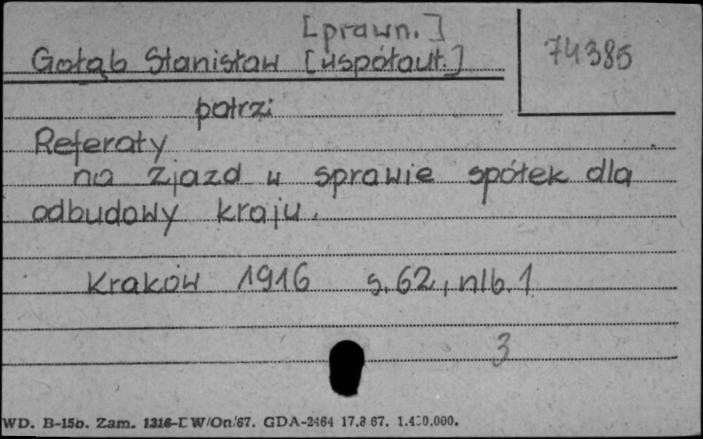 [prawn.]
Gołąb Stanisław [współaut.]
74385
patrz:
Referaty
na zjazd w sprawie spółek dla
odbudowy kraju.
Kraków 1916 s. 62, nlb. 1
3
WD. B-15b. Zam. 1316-D W/On/67. GDA-2464 17.8 67. 1.400.000.